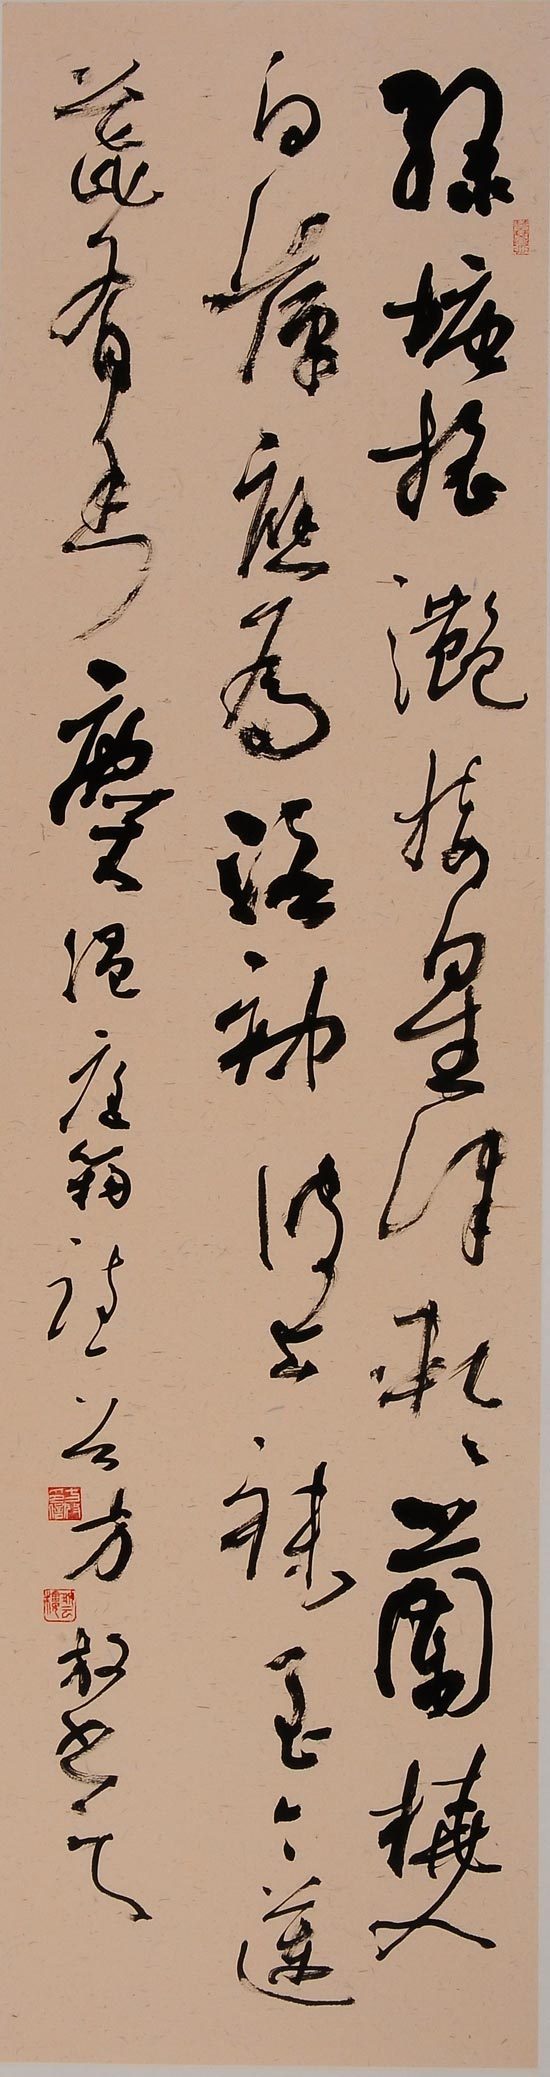 綠塘搖灩接星津軋〻蘭橈入
白蘋應為洛神波上襪至今蓮
蕊有香塵溫庭筠詩